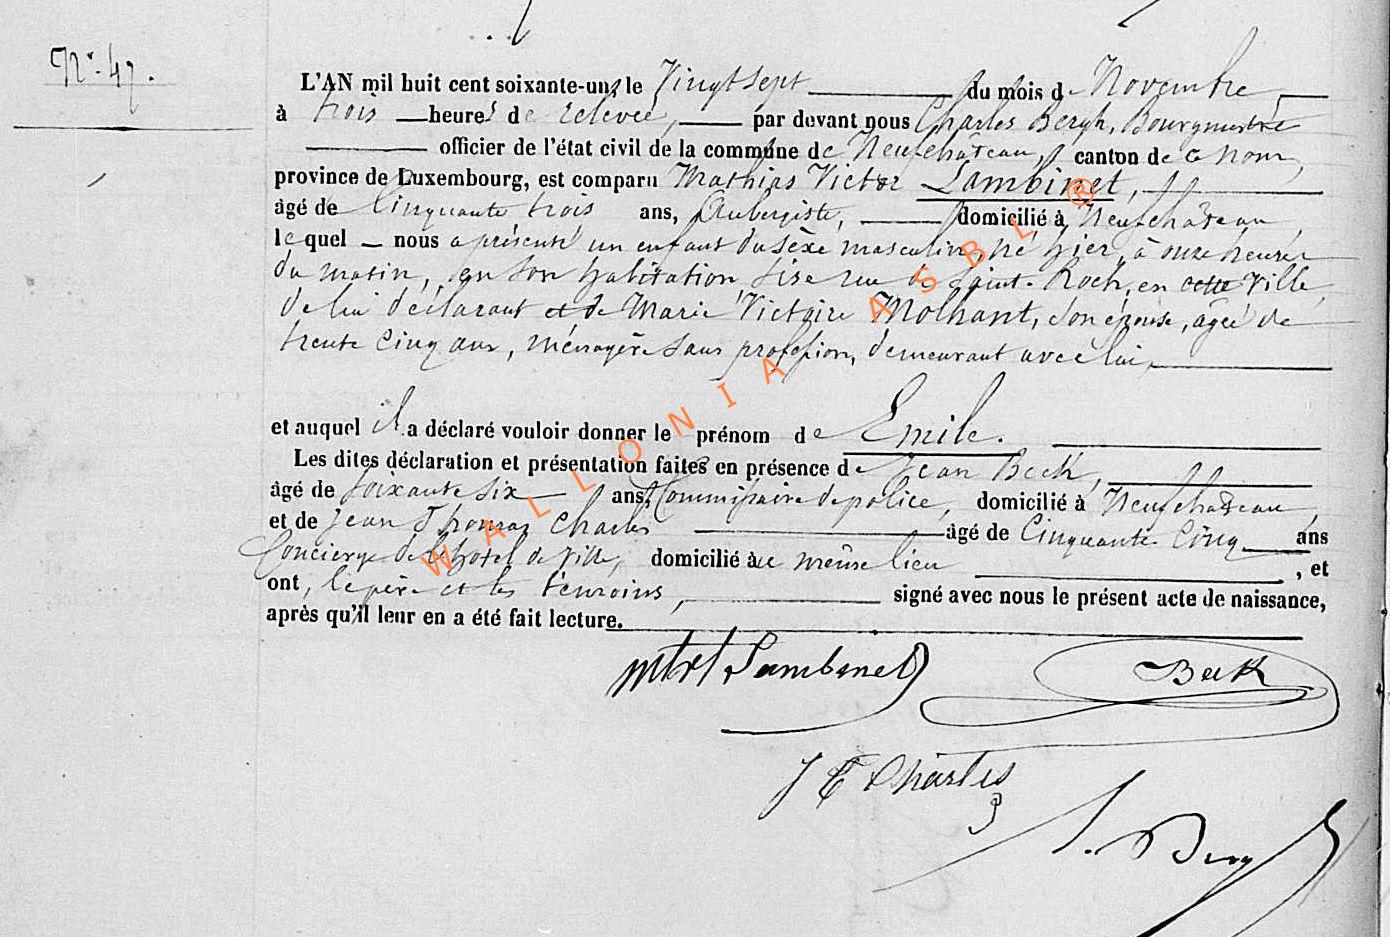 N°. 47.
L'AN mil huit cent soixante-un, le Vingt sept du mois de Novembre,
à trois heures de relevée, par devant nous Charles Bergh, Bourgmestre
officier de l'état civil de la commune de Neufchâteau, canton de ce nom,
province de Luxembourg, est comparu Mathias Victor Lambinet,
âgé de Cinquante trois ans, Aubergiste, domicilié à Neufchâteau,
lequel nous a présenté un enfant du sèxe masculin, né hier, à onze heures
du matin, en son habitation sise rue de Saint-Roch, en cette Ville,
de lui déclarant et de Marie Victoire Molhant, son épouse, âgée de
trente cinq ans, ménagère sans profession, demeurant avec lui,
et auquel il a déclaré vouloir donner le prénom de Emile.
Les dites déclaration et présentation faites en présence de Jean Beck,
âgé de soixante six ans, Commissaire de police, domicilié à Neufchâteau,
et de Jean Thomas Charles âgé de Cinquante Cinq ans
Concierge de l'hotel de Ville, domicilié au même lieu, et
ont, le père et les témoins, signé avec nous le présent acte de naissance,
après qu'il leur en a été fait lecture.
Lambinet Beck
J T Charles
WALLONIA ASBL ®